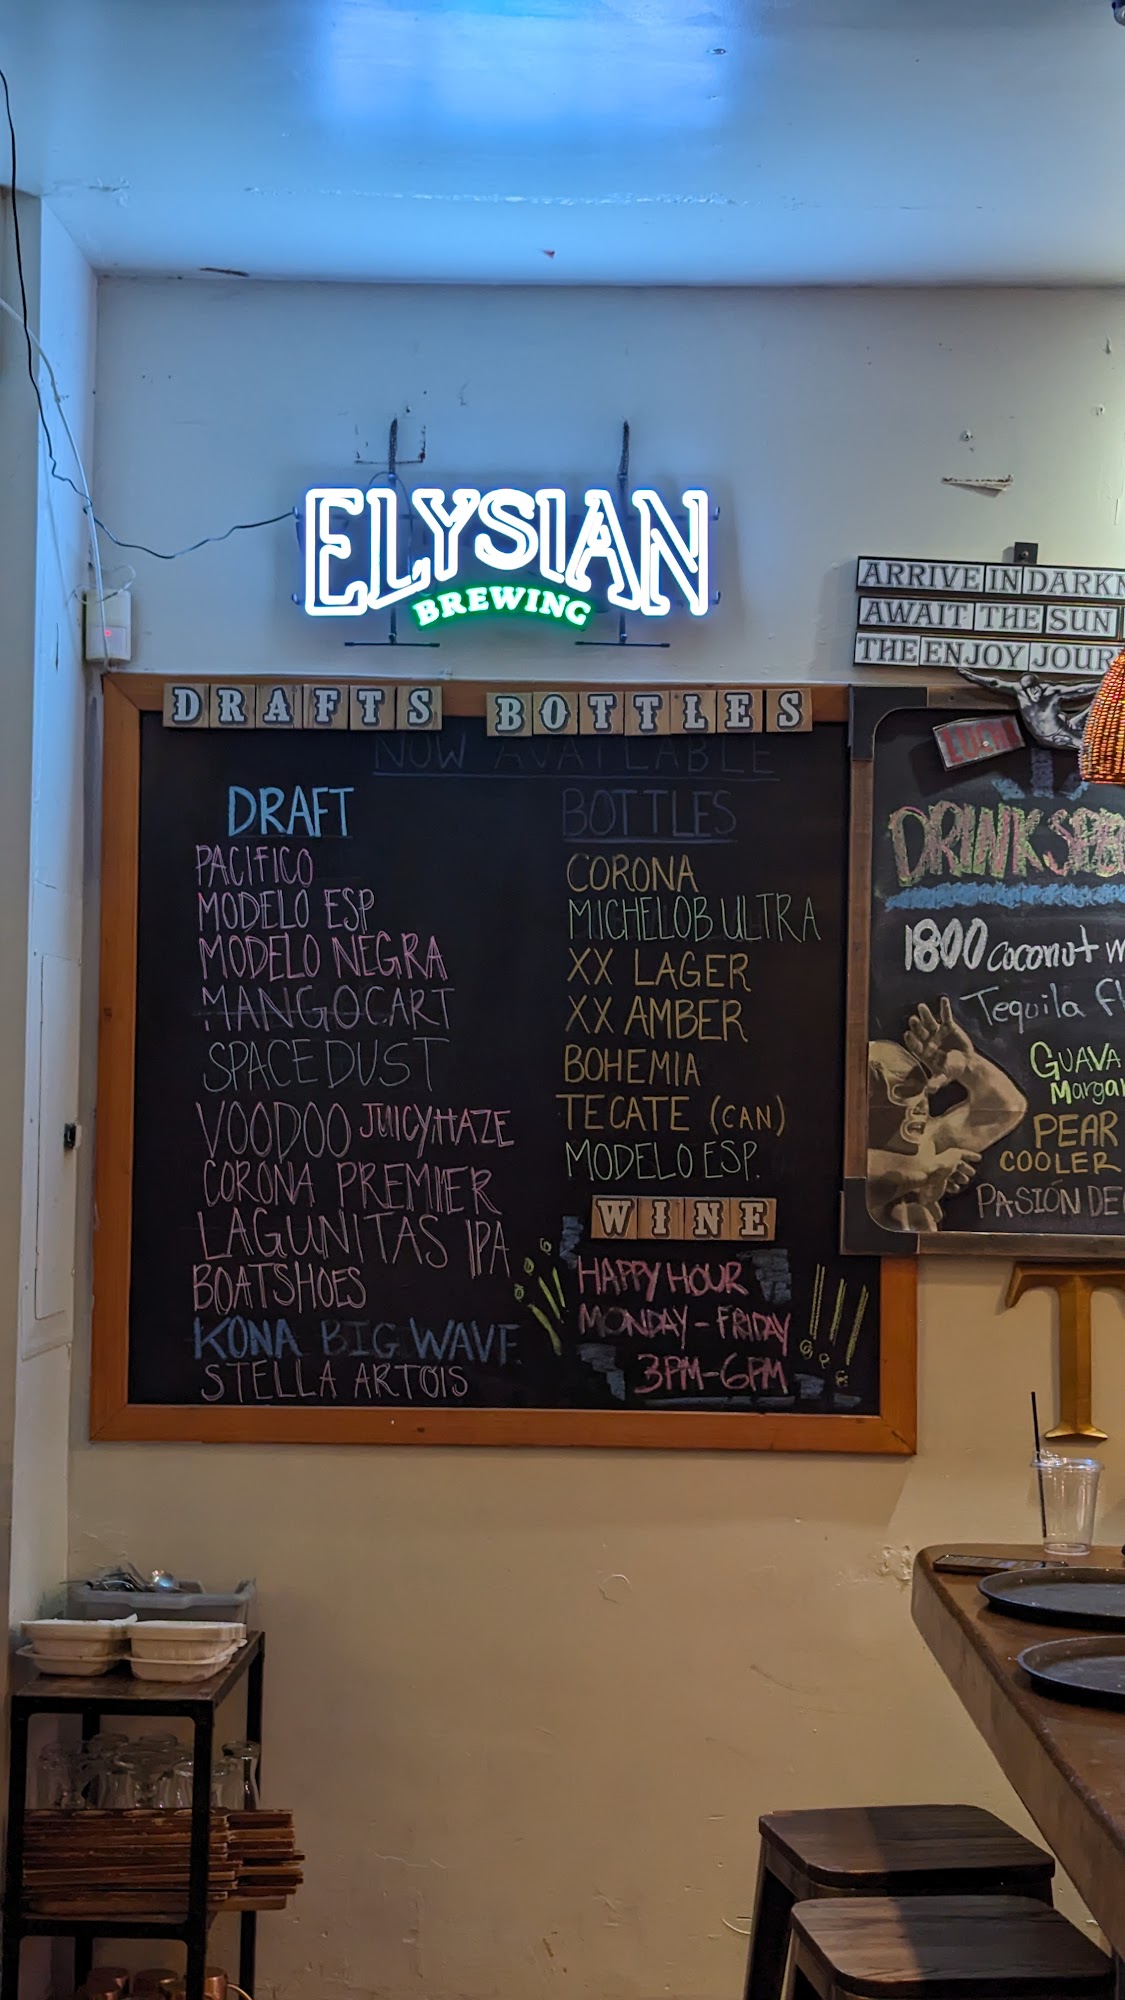 ELYSIAN
BREWING
ARRIVE IN DARKN
AWAIT THE SUN
THE ENJOY JOUR
DRAFTS BOTTLES
NOW AVAILABLE
DRAFT
PACIFICO
MODELO ESP
MODELO NEGRA
MANGOCART
SPACEDUST
VOODOO JUICYHAZE
CORONA PREMIER
LAGUNITAS IPA
BOATSHOES
KONA BIG WAVE
STELLA ARTOIS
BOTTLES
CORONA
MICHELOB ULTRA
XX LAGER
XX AMBER
BOHEMIA
TECATE (CAN)
MODELO ESP.
WINE
HAPPY HOUR
MONDAY - FRIDAY
3PM-6PM
DRINK
1800 coconut
Tequila
GUAVA
Margar
PEAR
COOLER
PASIÓN DE
T